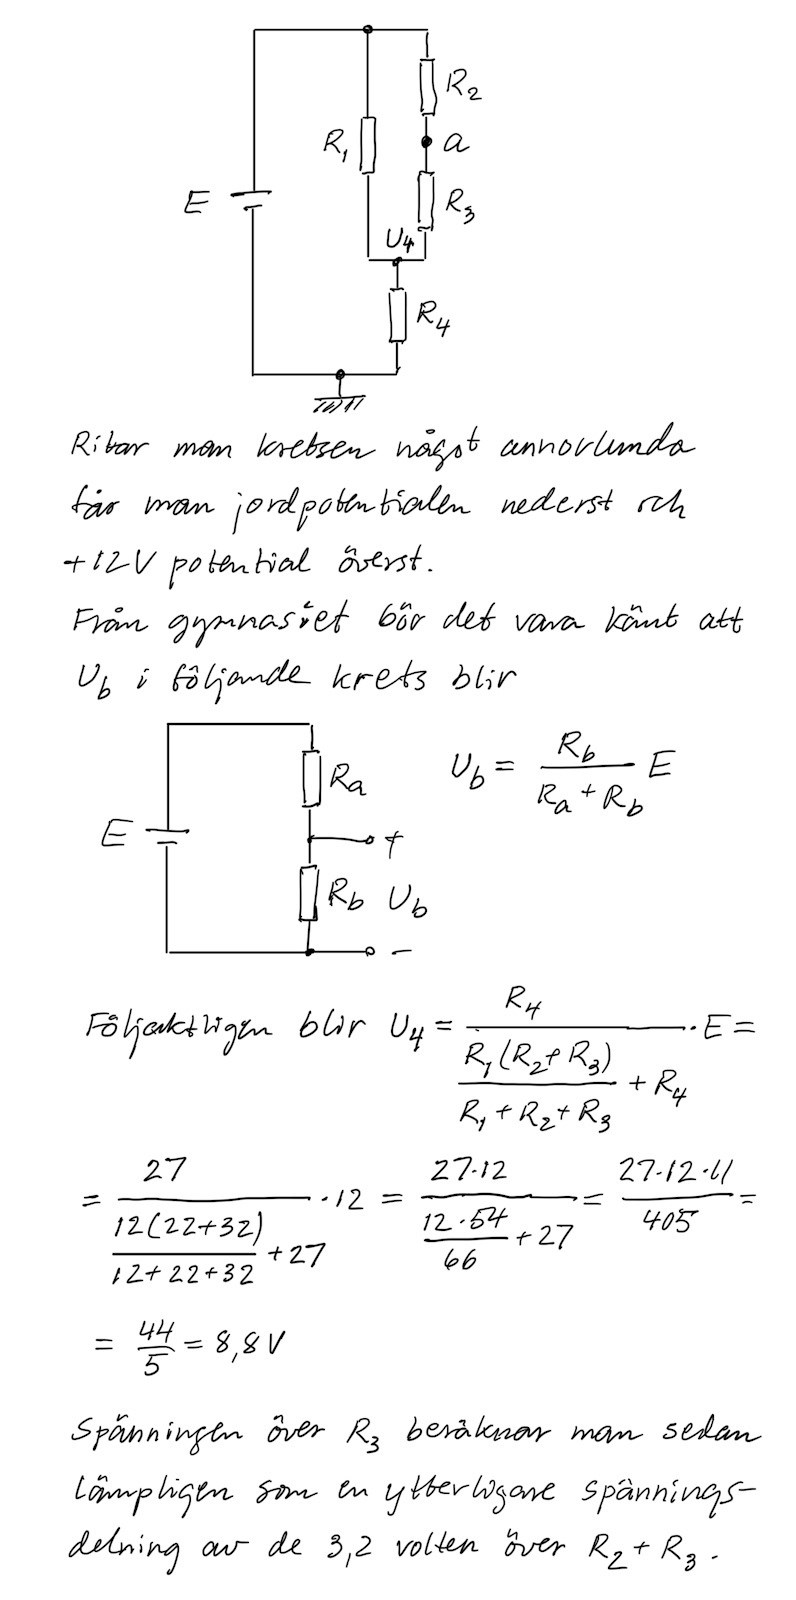 R₂
R₁
a
E
R₃
U₄
R₄
Ritar man kretsen något annorlunda
får man jordpotentialen nederst och
+12V potential överst.
Från gymnasiet bör det vara känt att
U_b i följande krets blir
R_a
U_b = R_b / (R_a + R_b) E
E
+
R_b U_b
-
Följaktligen blir U₄ = R₄ / (R₁(R₂+R₃) / (R₁+R₂+R₃) + R₄) · E =
= 27 / (12(22+32) / (12+22+32) + 27) · 12 = 27·12 / (12·54 / 66 + 27) = 27·12·11 / 405 =
= 44/5 = 8,8V
Spänningen över R₃ beräknar man sedan
lämpligen som en ytterligare spännings-
delning av de 3,2 volten över R₂ + R₃.